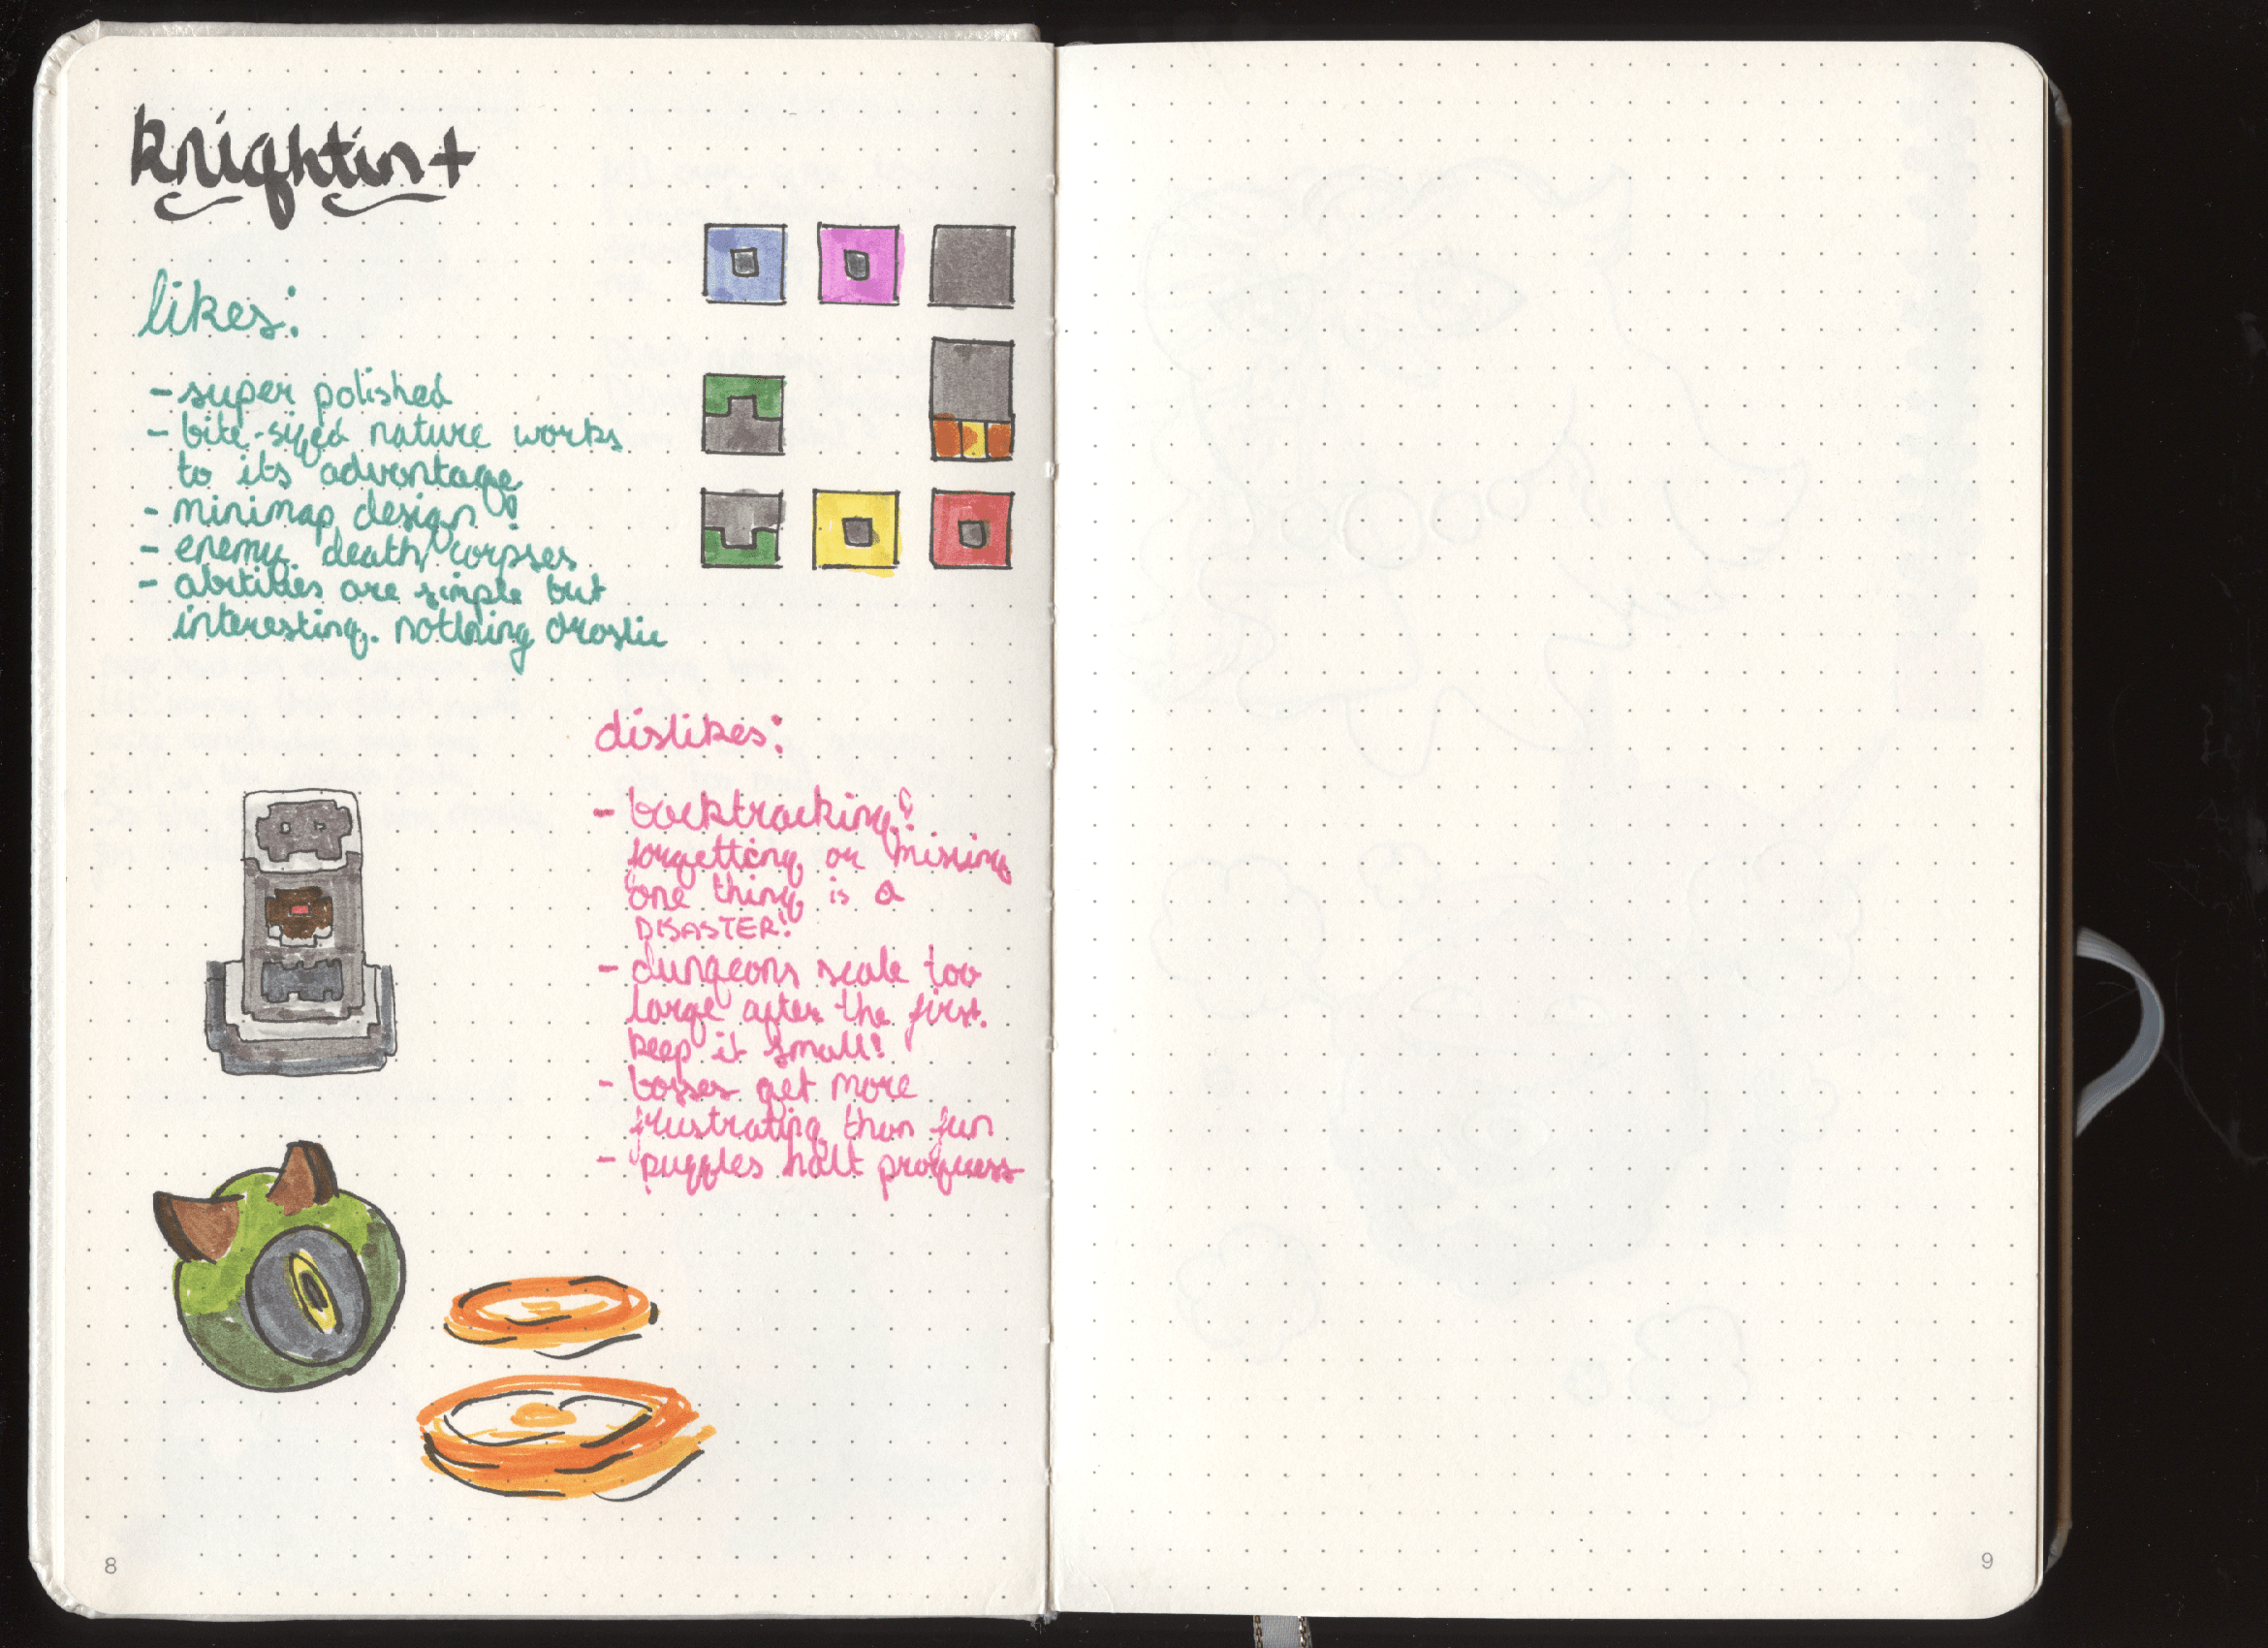 knightin+
likes:
- super polished
- bite-sized nature works
to its advantage
- minimap design!
- enemy death corpses
- abilities are simple but
interesting. nothing drastic
dislikes:
- backtracking!
forgetting or missing
one thing is a
DISASTER!
- dungeons scale too
large after the first.
keep it small!
- bosses get more
frustrating than fun
- puzzles halt progress
8
9